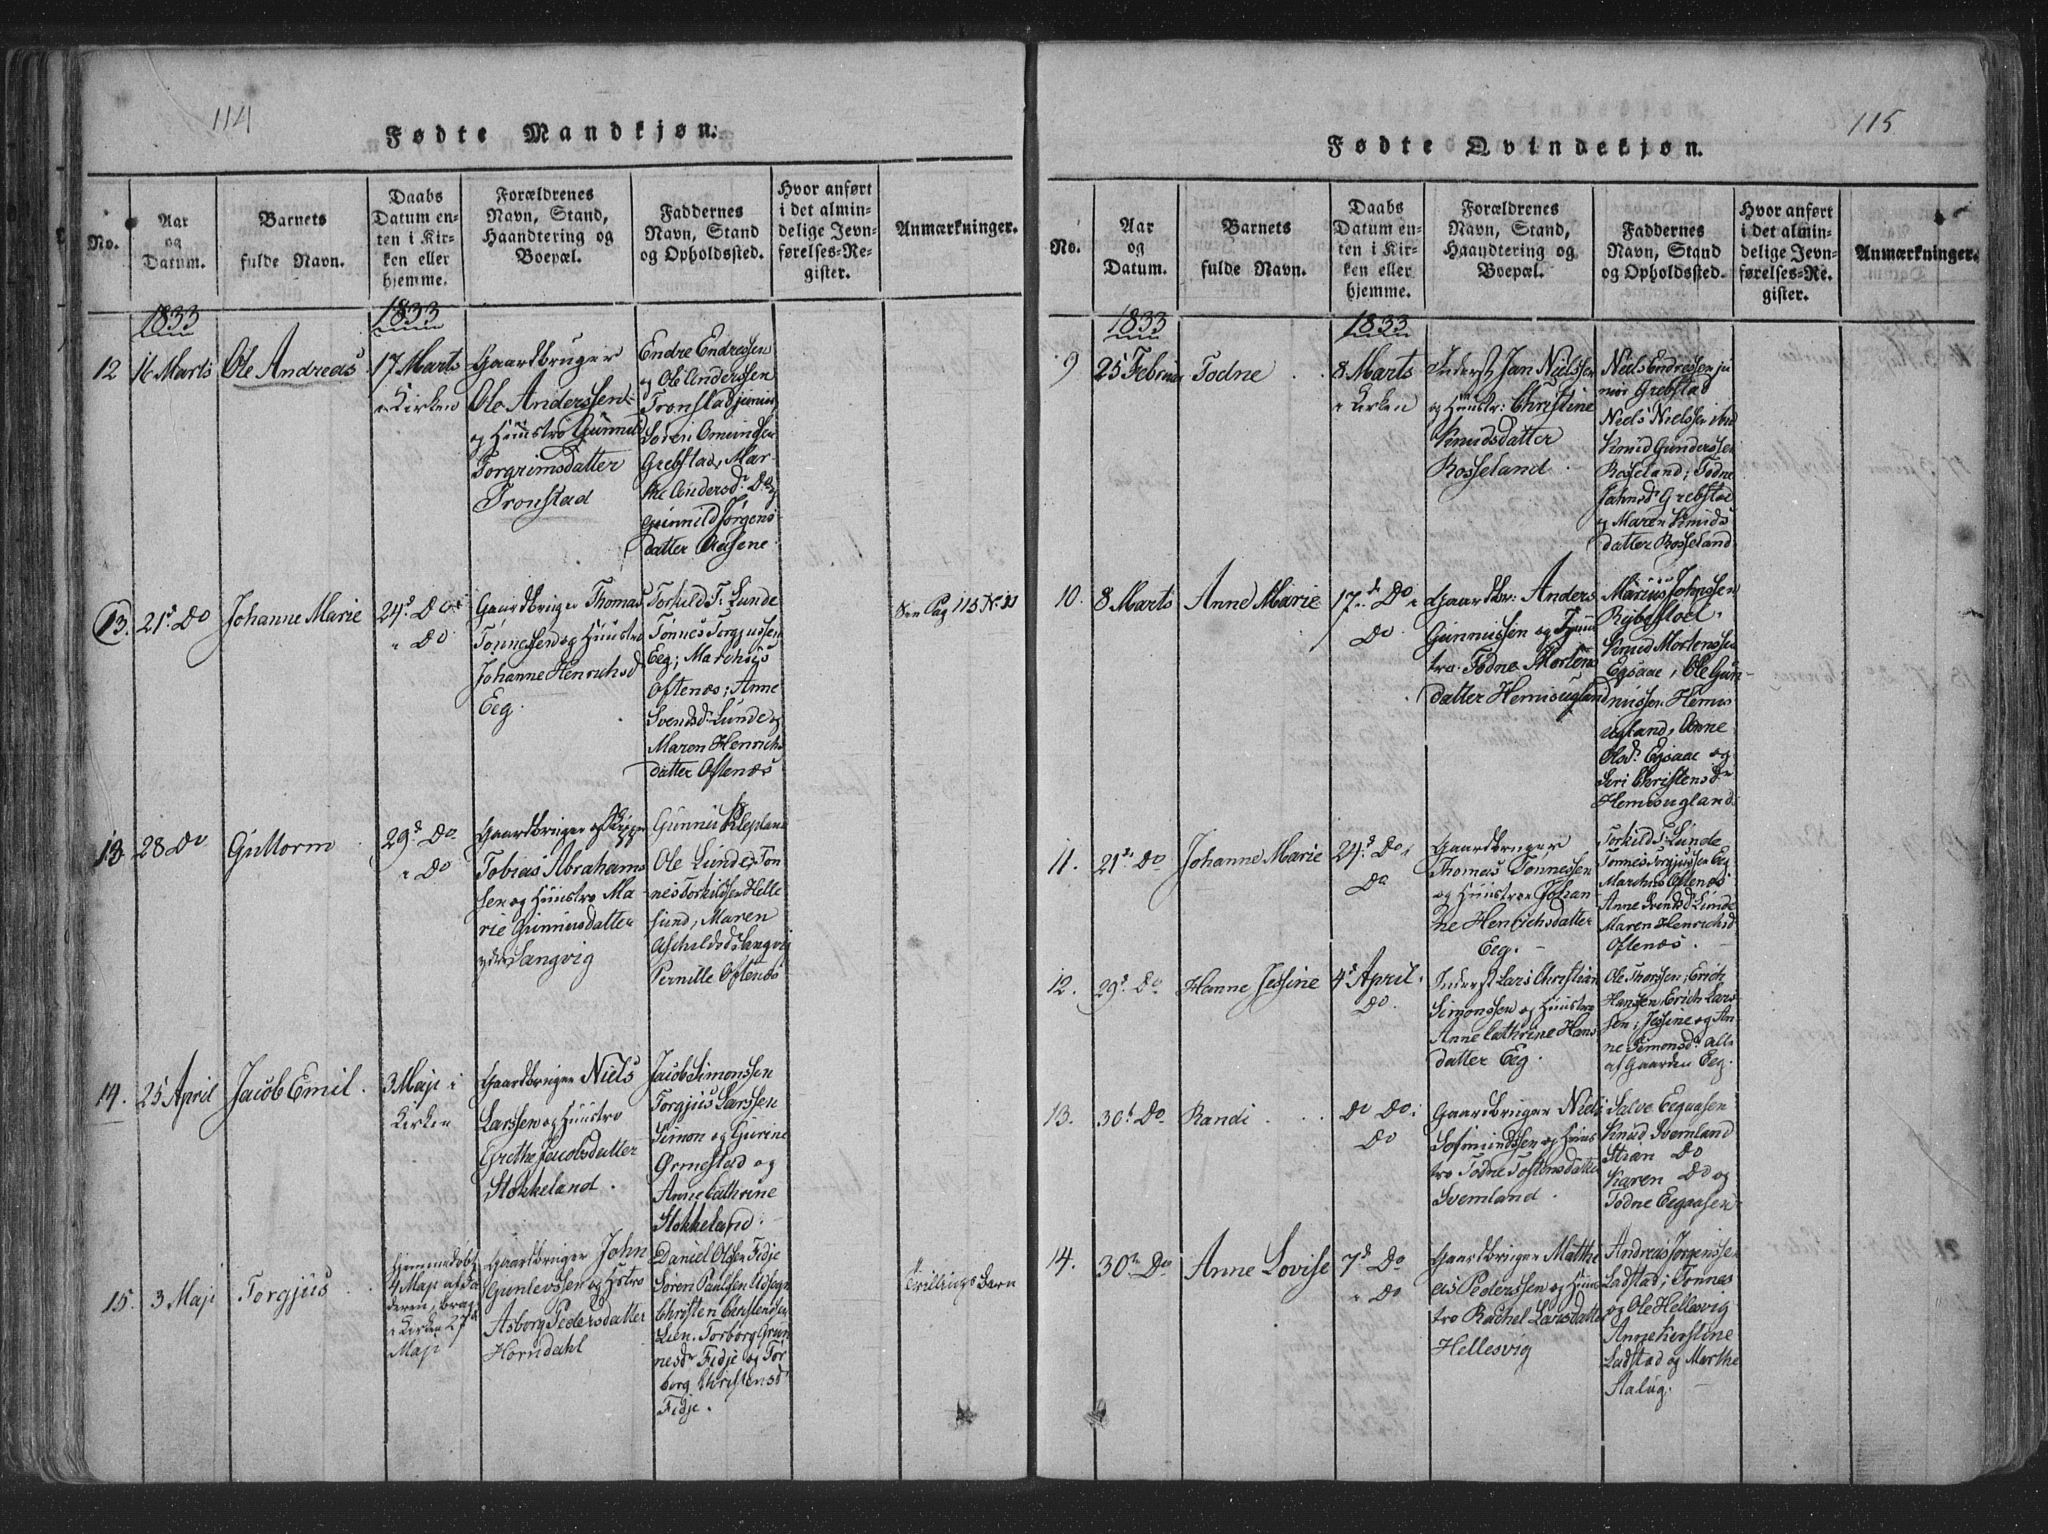 114
Fødte Mandkjøn.
No.
Aar
og
Datum.
Barnets
fulde Navn.
Daabs
Datum en-
ten i Kir-
ken eller
hjemme.
Forældrenes
Navn, Stand,
Haandtering og
Boepæl.
Faddernes
Navn, Stand
og Opholdssted.
Hvor anført
i det almin-
delige Jevn-
førelses-Re-
gister.
Anmærkninger.
1833
1833
12
16 Marts
Ole Andreas
17 Marts
i Kirken
Gaardbruger
Ole Anderssen
og Huustro Gunnild
Torgrimsdatter
Tronstad
Endre Endressen
og Ole Anderssen
Tronstad junior
Søren Omundsen
Grebstad, Mar-
the Andersd. Do
Gunnild Jørgens
datter Aasene
13.
21d Do
Johanne Marie
24d Do i
Do
Gaardbruger Thomas
Tønnessen og Huustro
Johanne Henrichsd
Eeg.
Torkild T. Lunde
Tønnes Torgjussen
Eeg; Marchus
Oftenæs; Anne
Svendsd. Lunde og
Maren Henrichs
datter Oftenæs
See Pag 115 No 11
13
28 Do
Guttorm
29d Do
i Do
Gaardbruger og Skipper
Tobias Abrahams
sen og Huustro Ma
rie Gunnusdatter
Langvig
Gunnu Klepland
Ole Lunde, Tøn
nes Torkildsen Helle
sund; Maren
Aschildsd. Langvig
Pernille Oftenæs
14.
25 April
Jacob Emil.
3 Maji i
Kirken
Gaardbruger Niels
Larssen og Huustro
Grethe Jacobsdatter
Stokkeland.
Jacob Simonssen
Torgjus Larssen
Simon og Gurine
Ørmestad og
Anne Cathrine
Stokkeland.
15.
3 Maji
Torgjus
Hjemmedøbt
4 Maji af Fa
deren, bragt
i Kirken 27d
Maji
Gaardbruger John
Gunlevssen og Hstro
Asborg Pedersdatter
Horndahl
Daniel Olsen Fidje
Søren Paulsen Udsogn
Christen Christensen
Lien. Torborg Grun
nesdr Fidje og Tor
borg Christensd
Fidje.
Tvillings Børn
115
Fødte Qvindekjøn.
No.
Aar
og
Datum.
Barnets
fulde Navn.
Daabs
Datum en-
ten i Kir-
ken eller
hjemme.
Forældrenes
Navn, Stand,
Haandtering og
Boepæl.
Faddernes
Navn, Stand
og Opholdssted.
Hvor anført
i det almin-
delige Jevn-
førelses-Re-
gister.
Anmærkninger.
1833
1833
9
25 Februar
Todne
8 Marts
i Kirken
Inderst Jan Nielssen
og Huustr: Christine
Knudsdatter
Rosseland
Niels Endressen ju
nior Grebstad
Niels Nielssen
Knud Gunderssen
Rosseland; Todne
Jahnsd Grebstad
og Maren Knuds
datter Rosseland
10.
8 Marts
Anne Marie
17d Do i
Do
Gaardbr: Anders
Gunnussen og Huus
tro Todne Mortens
datter Hemisugland
Marius Johnssen
Rybestoel.
Knud Mortenssen
Egsaae, Ole Gun-
nussen Hemis
ugland, Anne
Olsd. Egsaae og
Seri Christensdr
Hemisugland
11.
21d Do
Johanne Marie
24d Do i
Do
Gaardbruger
Thomas Tønnessen
og Huustroe Johan
ne Henrichsdatter
Eeg.
Torkild T. Lunde
Tønnes Torgjussen Eeg
Marchus Oftenæs
Anne Svendsd. Lunde
Maren Henrichsd
Oftenæs.
12.
29d Do
Hanne Jessine
4d April.
Do.
Inderst Lars Christian
Simonssen og Huustro
Anne Cathrine Hans
datter Eeg.
Ole Thorssen; Erich
Hanssen, Erich Lars
sen; Jessine og An
ne Simonsd. alle
af Gaarden Eeg.
13.
30d Do
Randi
Do Do i
Do
Gaardbruger Niels
Sofmundssen og Huus
tro Todne Tostensdatter
Svemland.
Salve Eegaasen
Knud Svemland
Stræn Do
Karen Do og
Todne Eegaasen
14.
30te Do
Anne Lovise
7d Do
i Do
Gaardbruger Mathi
as Pederssen og Huus
tro Rachel Larsdatter
Hellesvig
Andreas Jørgenssen
Ladstad; Tønnes
og Ole Hellesvig
Anne Kirstine
Ladstad og Marthe
Aalug.